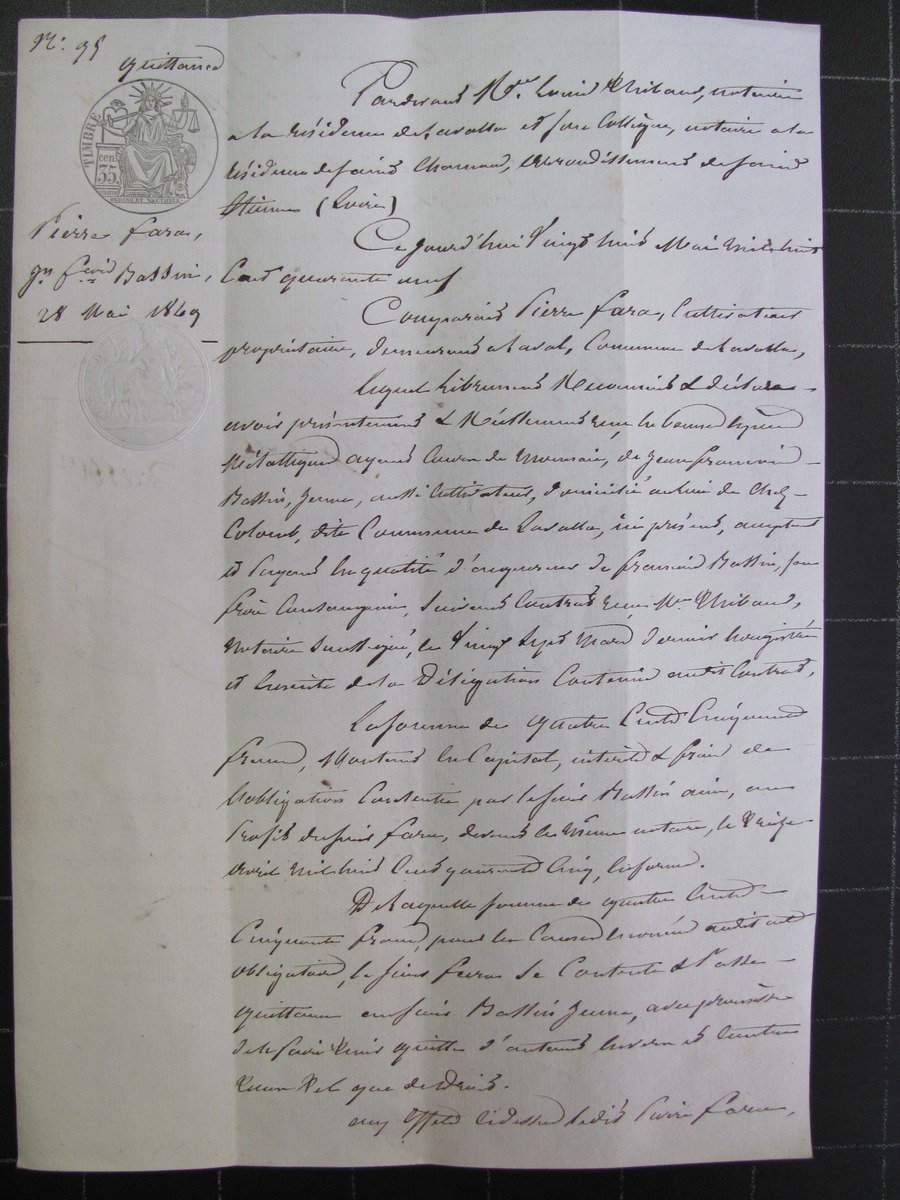 N.° 95
quittance
TIMBRE
cen.
35
Pierre fara,
Bassin,
28 Mai 1849
Pardevant M.e Louis Thibaud, notaire
a la résidence de Lavalla et son Collègue, notaire a la
résidence de saint Chamond, arrondissement de saint
Etienne (Loire)
Ce jourd'hui Vingt huit Mai mil huit
Cent quarante neuf
Comparait Pierre fara, Cultivateur
propriétaire, demeurant a Laval, Commune de Lavalla,
lequel librement Reconnait & déclare
avoir présentement & Réellement reçu en bonnes espèces
Métallique ayant Cours de Monnaie, de Jean françois
Bassin, Jeune, aussi Cultivateur, domicilié au lieu de Chez-
Colomb, dite Commune de Lavalla, ici présent, acceptant
et Payant en qualité d'acquereur de françois Bassin, son
frère Consanguin, Suivant Contrat reçu M.e Thibaud,
notaire soussigné, le Vingt Sept Mars dernier Enregistré
et Ensuite de la Délégation Contenue audit Contrat,
La somme de quatre Cents Cinquante
francs, Montant en Capital, intérêts & frais de
l'obligation Consentie par le sieur Bassin ainé, au
Profit du sieur fara, devant le même notaire, le treize
avril mil huit Cent quarante Cinq, en forme.
De laquelle somme de quatre Cents
Cinquante francs, pour les Causes énoncées audit acte
obligatoire, le sieur fara se Contente & Passe
quittance au sieur Bassin Jeune, avec promesse
de le faire tenir quitte d'autant Envers et Contre
tous tel que de Droit.
aux Effets Cidessus ledit Pierre fara,